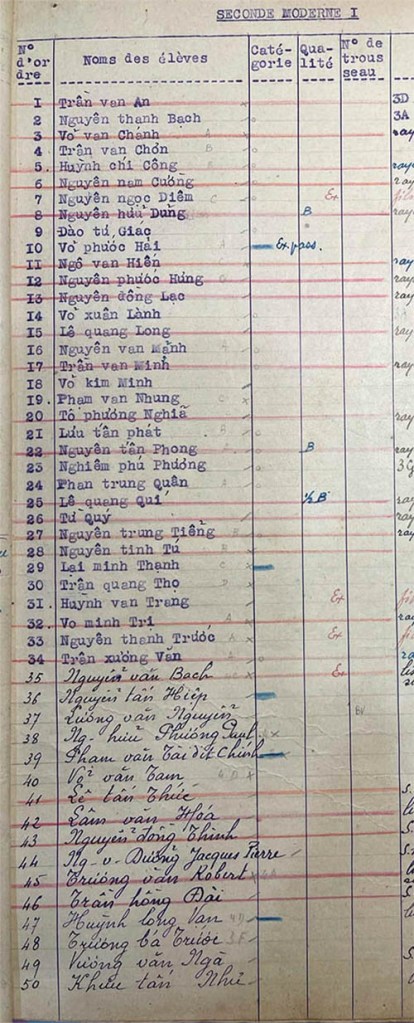 SECONDE MODERNE I
N° d'or dre Noms des élèves Caté- gorie Qua- lité N° de trous seau
I Trân van An 3D
2 Nguyên thanh Bạch 3A
3 Vo van Chánh A ray
4 Trân van Chơn B
5. Huỳnh chi Công A ray
6 Nguyên nam Cường ray
7 Nguyên ngọc Diêm C Ex
8 Nguyên hưu Dung B ray
9 Đào tứ Giác
10 Vo phước Hải Ex pass.
II Ngô van Hiên ray
I2 Nguyên phước Hưng ray
I3 Nguyên đông Lạc ray
I4 Vo xuân Lành
I5 Lê quang Long ray
I6 Nguyên van Mảnh A
I7 Trân van Minh ray
I8 Vo kim Minh
I9. Pham van Nhung C x
20 Tô phương Nghia ray
2I Lưu tân phát B
22 Nguyên tân Phong B ray
23 Nghiêm phú Phương
24 Phan trung Quân A
25 Lê quang Quí ½ B ray
26 Từ Quý ray
27 Nguyên trung Tiêng ray
28 Nguyên tinh Tú
29 Lai minh Thạnh C
30 Trân quang Thọ
3I. Huỳnh van Trang Ex
32. Vo minh Tri A ray
33 Nguyên thanh Trước A Ex
34 Trân xương Văn A
35 Nguyên văn Bach Ex
36 Nguyên tấn Hiệp
37 Lương văn Nguyên
38 Ng- hữu Phương Paul x
39 Pham văn Tài dit Chính
40 Võ văn Tam
41 Lê tấn Thức
42 Lâm văn Hóa
43 Nguyên đồng Thinh
44 Ng-v-Dương Jacques Pierre
45 Trương văn Robert
46 Trần hồng Đài
47 Huỳnh long Van
48 Trương bá Trước
49 Vương văn Ngà
50 Khưu tấn Như